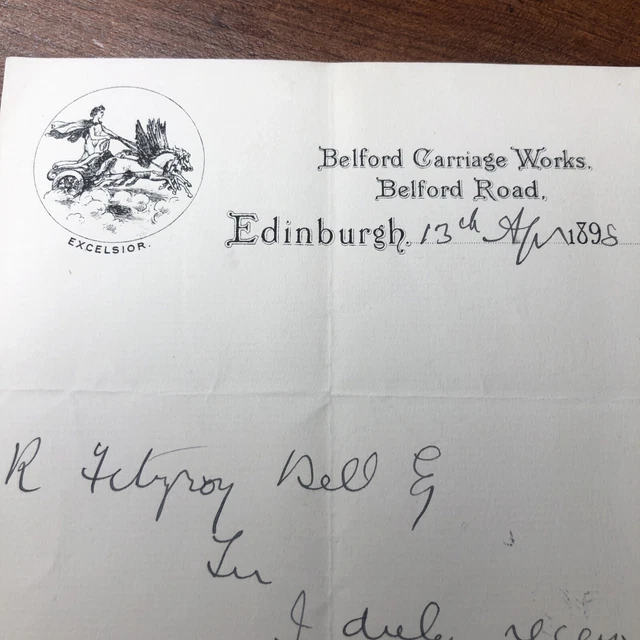 EXCELSIOR.
Belford Carriage Works.
Belford Road,
Edinburgh, 13th Apr 1898
R Fitzroy Bell Esq
Sir
I duly